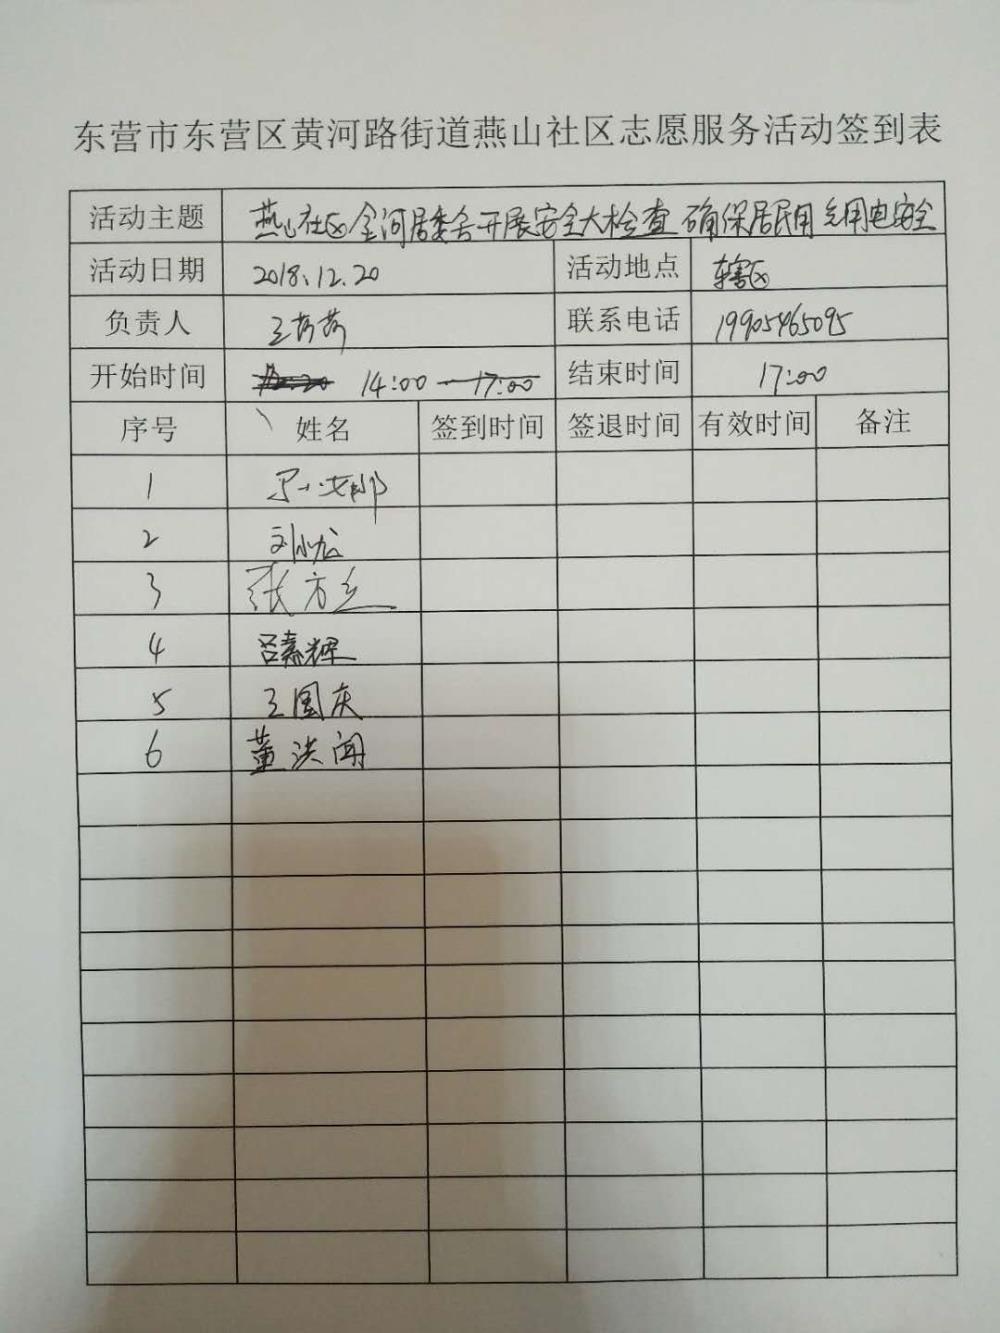 东营市东营区黄河路街道燕山社区志愿服务活动签到表
活动主题 燕山社区金河居委会开展安全大检查 确保居民用气用电安全
活动日期 2018.12.20 活动地点 辖区
负责人 王芳芳 联系电话 19905465095
开始时间 14:00 17:00 结束时间 17:00
序号 姓名 签到时间 签退时间 有效时间 备注
1
2 刘小龙
3 张方
4 吕嘉辉
5 王国庆
6 董洪闻